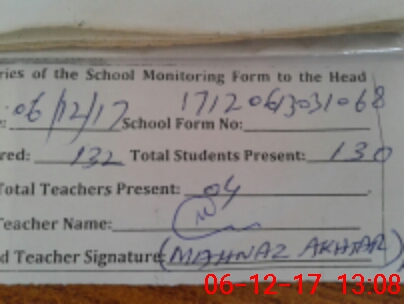 ries of the School Monitoring Form to the Head
e: 06/12/17 School Form No: 17120613031068
red: 132 Total Students Present: 130
Total Teachers Present: 04
Teacher Name:
d Teacher Signature (MAHNAZ AKHTAR)
06-12-17 13:08